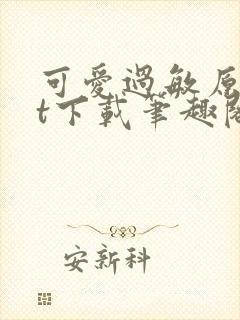 可愛過敏原
t下載筆趣閣
安新科